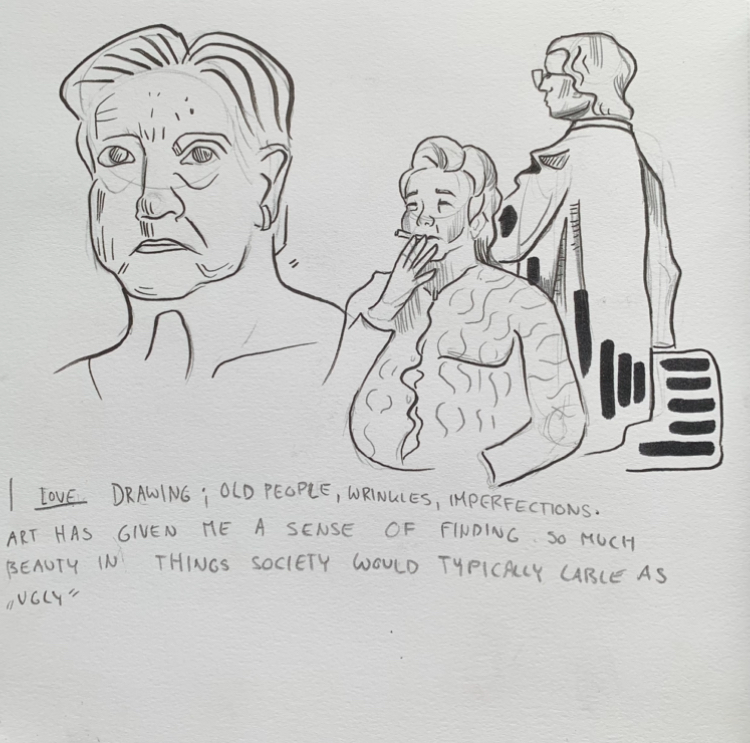 I LOVE DRAWING ; OLD PEOPLE, WRINKLES, IMPERFECTIONS.
ART HAS GIVEN ME A SENSE OF FINDING SO MUCH
BEAUTY IN THINGS SOCIETY WOULD TYPICALLY LABLE AS
„UGLY“